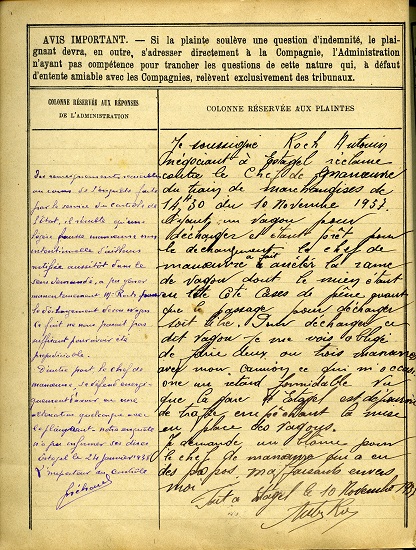 AVIS IMPORTANT. — Si la plainte soulève une question d'indemnité, le plai-
gnant devra, en outre, s'adresser directement à la Compagnie, l'Administration
n'ayant pas compétence pour trancher les questions de cette nature qui, à défaut
d'entente amiable avec les Compagnies, relèvent exclusivement des tribunaux.
COLONNE RÉSERVÉE AUX RÉPONSES
DE L'ADMINISTRATION
Des renseignements recueillis
au cours de l'enquête faite
par le service du Contrôle de
l'État, il résulte qu'une
légère fausse manœuvre non
intentionnelle
aussitôt dans le
sens demandé, a pu gêner
momentanément Mr Roch pour
le déchargement de son wagon
Ce fait ne nous paraît pas
suffisant pour avoir été
préjudiciable.
D'autre part le chef de
manœuvre se défend énergi-
quement d'avoir eu une
altercation quelconque avec
le plaignant. notre enquête
n'a pu confirmer ses dires
Estagel le 24 janvier 1938
L'inspecteur du contrôle
COLONNE RÉSERVÉE AUX PLAINTES
Je soussigné Roch Antonin
négociant à Estagel réclame
contre le Chef de manœuvre
du train de marchandises de
14h30 du 10 Novembre 1937.
Ayant un vagou pour
décharger et étant prêt pour
le déchargement le chef de
manœuvre a fait arrêter la rame
de vagou dont le mien étant
en tête Côté Cases de pierre
que le passage pour décharger
soit libre. Pour décharger ce
dit vagou Je me vois obligé
de faire deux ou trois manœuvres
avec mon camion ce qui m'occasi
onne un retard formidable vu
que la gare d'Estagel est dépourvue
de trafic empêchant la mise
en place des vagous.
Je demande un blâme pour
le chef de manœuvre qui a eu
des propos malfaisants envers
moi.
Fait à Estagel le 10 Novembre 1937